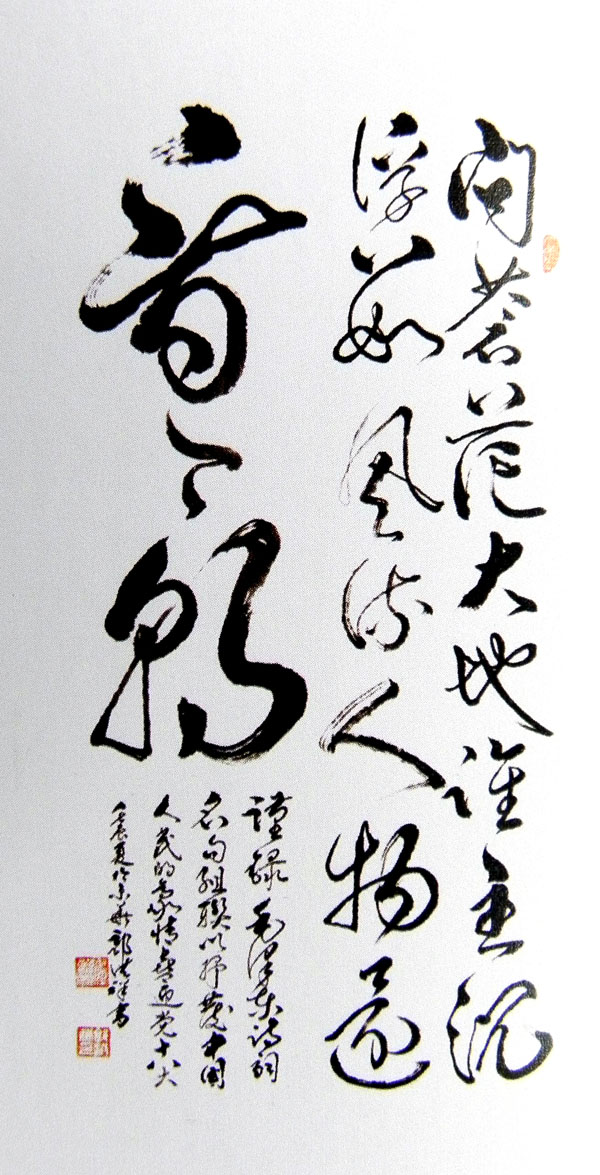 问苍茫大地谁主沉
浮数风流人物还
看今朝
谨录毛泽东诗词
名句组联以抒发中国
人民的豪情喜迎党十八大
壬辰夏於京华郭洪祥书